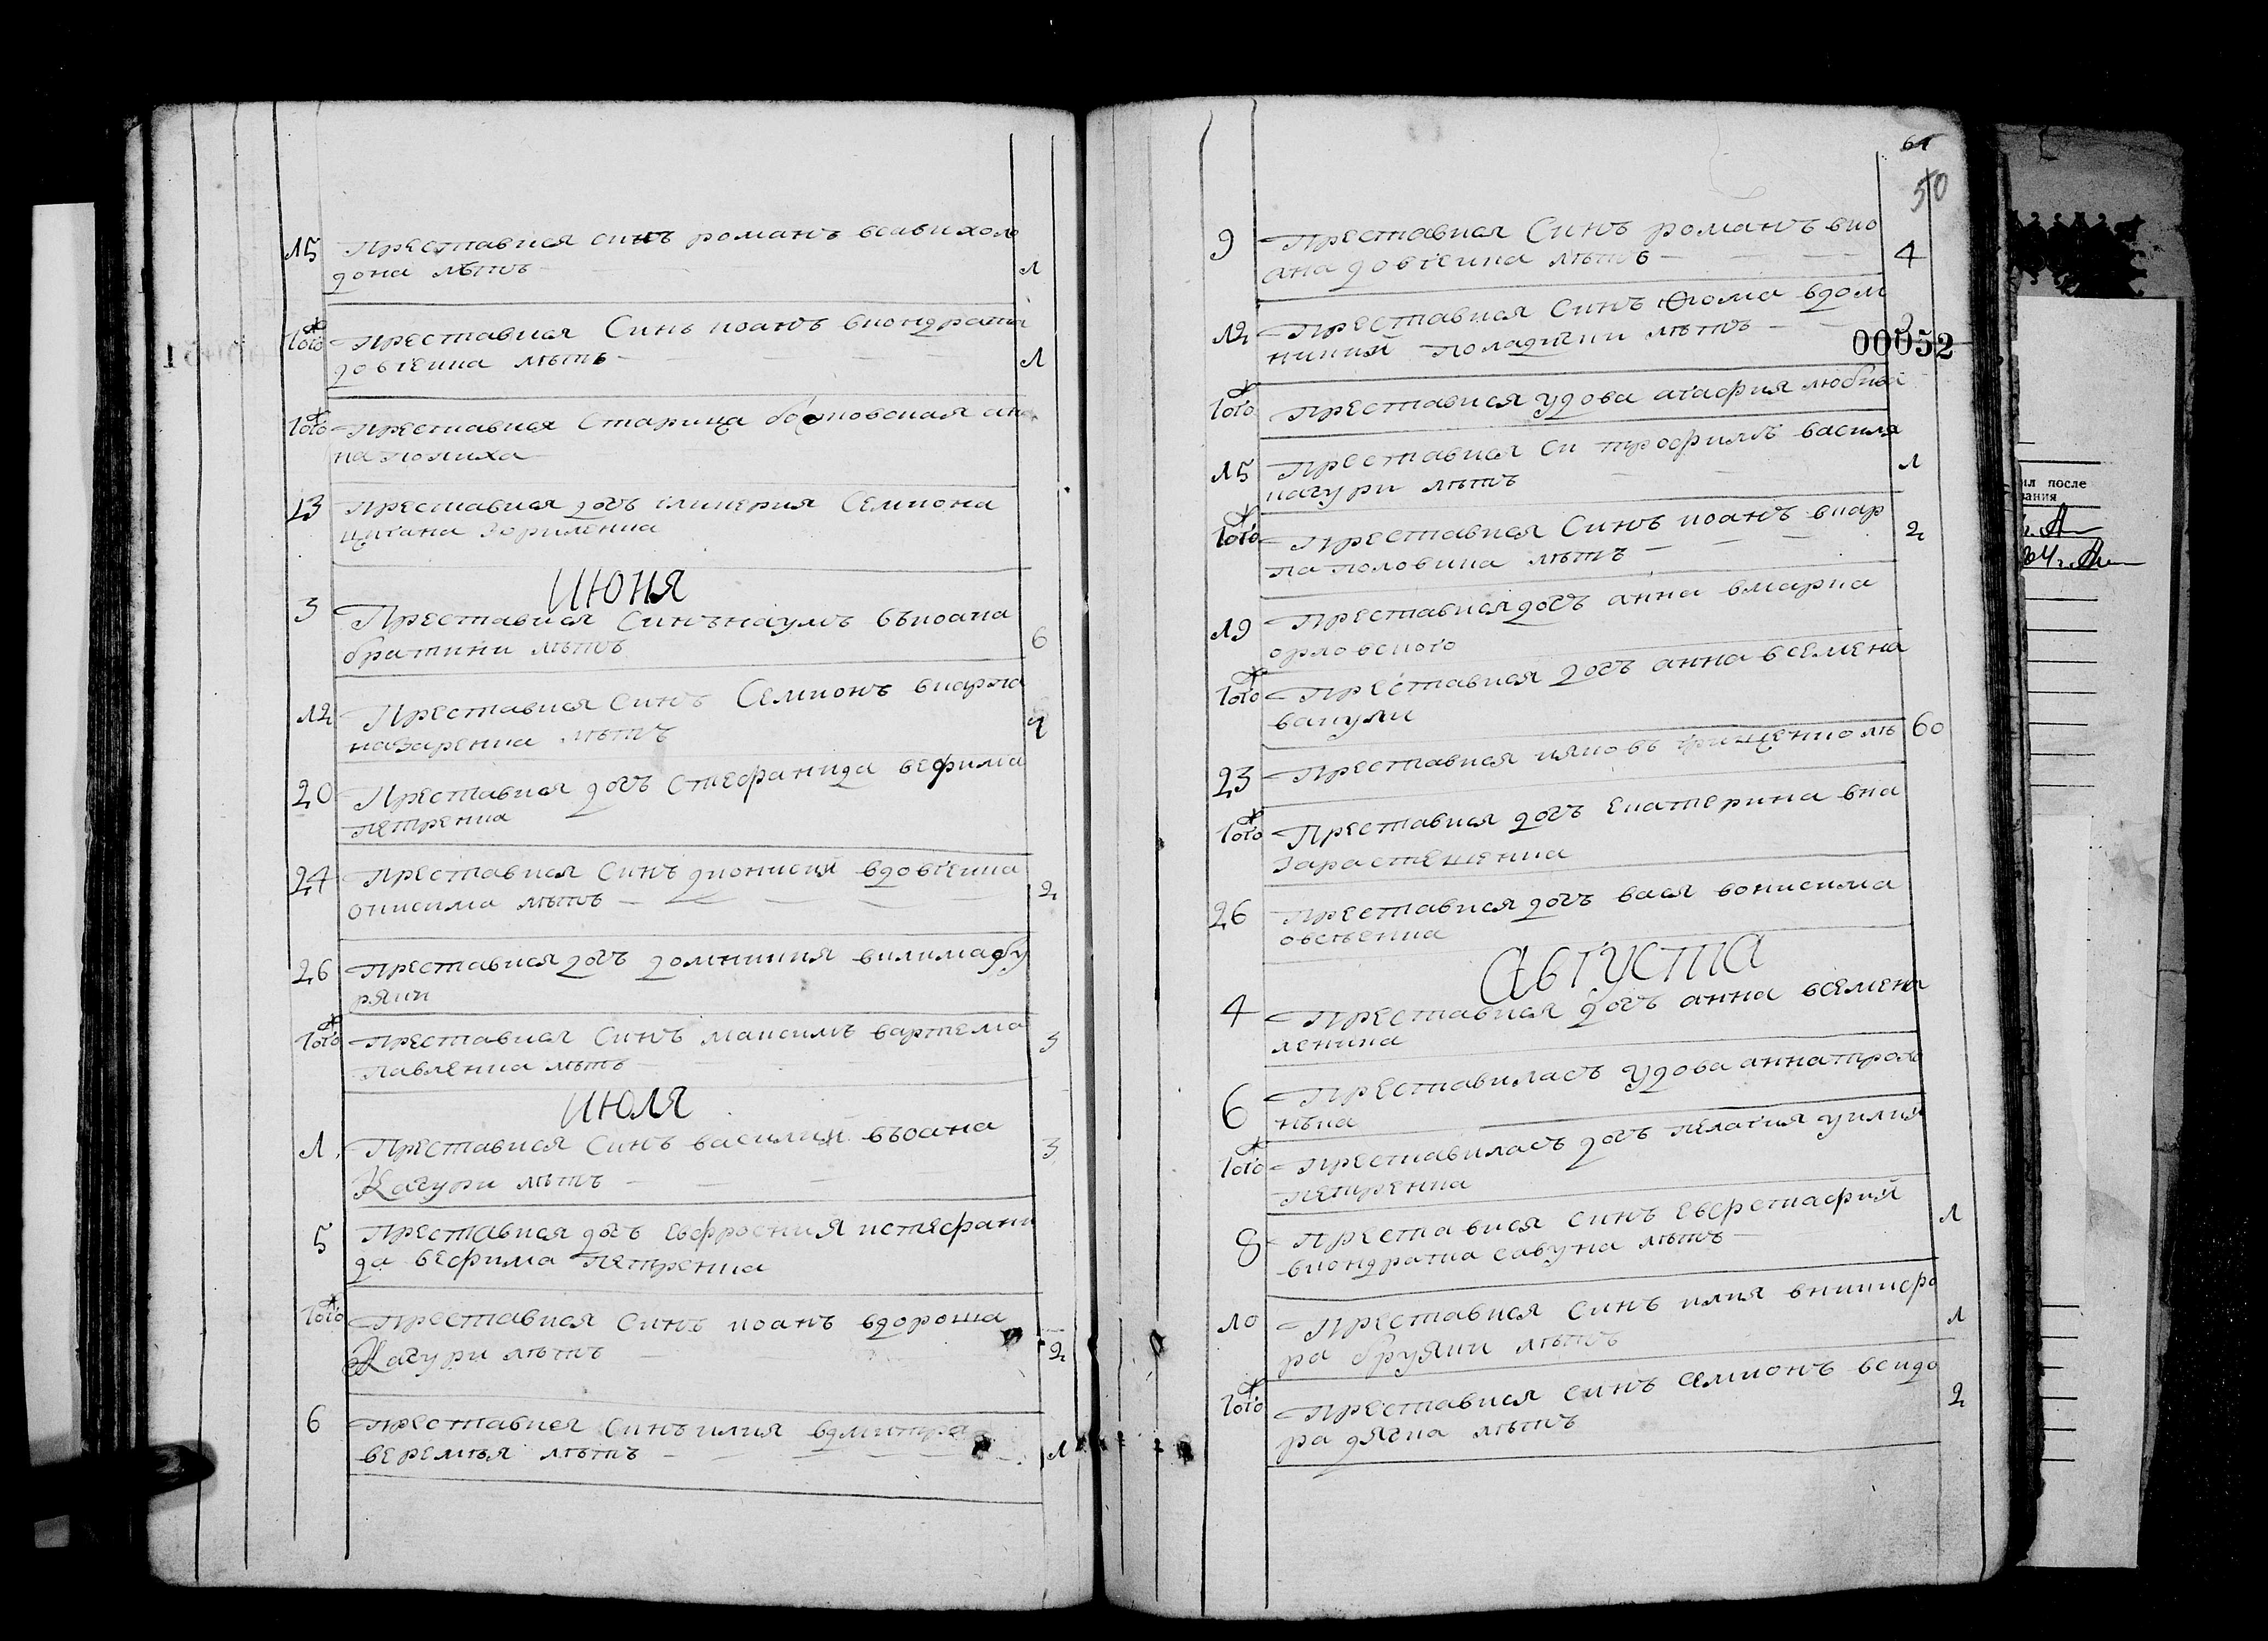 15 Преставися синъ романъ всавихоло
дона лѣтъ 1
Того Преставися Синъ иоанъ вкондрата
довгенка лѣтъ 1
Того Преставися Старица ан
на
13 Преставися дочъ гликерия Семиона
цигана Зориленка
ИЮНЯ
3 Преставися Синъ наумъ въиоана
братики лѣтъ 6
12 Преставися Синъ Семионъ вкарпа
назаренка лѣтъ
20 Преставися дочъ Стефанида вефима
петренка
24 Преставися Синъ дионисий вдовгенка
онисима лѣтъ 2
26 Преставися дочъ домникия
ряки
Того Преставися Синъ максимъ вартема
павленка лѣтъ 3
ИЮЛЯ
1 Преставися Синъ василий въоана
Качури лѣтъ 3
5 Преставися дочъ евфросния истефани
да вефима Петренка
Того Преставися Синъ иоанъ вдороша
Качури лѣтъ 2
6 Преставися Синъ илия вдмитра
веремѣя лѣтъ 1
61
50
9 Преставися Синъ романъ вио
ана довгенка лѣтъ 4
12 Преставися Синъ Фома вдом
никий поладички лѣтъ
00052
Того Преставися удова агафия
15 Преставися си трофимъ василя
качури лѣтъ 1
Того Преставися Синъ иоанъ вкар
па половика лѣтъ 2
19 Преставися дочъ анна вмарка
орловского
Того Преставися дочъ анна всемена
вакули
23 Преставися яковъ лѣ 60
Того Преставися дочъ Екатерина вна
зара стешенка
26 Преставися дочъ вася вонисима
овсѣенка
АВГУСТА
4 Преставися дочъ анна всемена
леника
6 Преставиласъ Удова анна
Того Преставиласъ дочъ пелагия уилии
петренка
8 Преставися синъ евфстафий
вкондрата савуна лѣтъ 1
10 Преставися синъ илия вникифо
ра бруяки лѣтъ 1
Того Преставися синъ семионъ всидо
ра дячка лѣтъ 2
ил после
вания